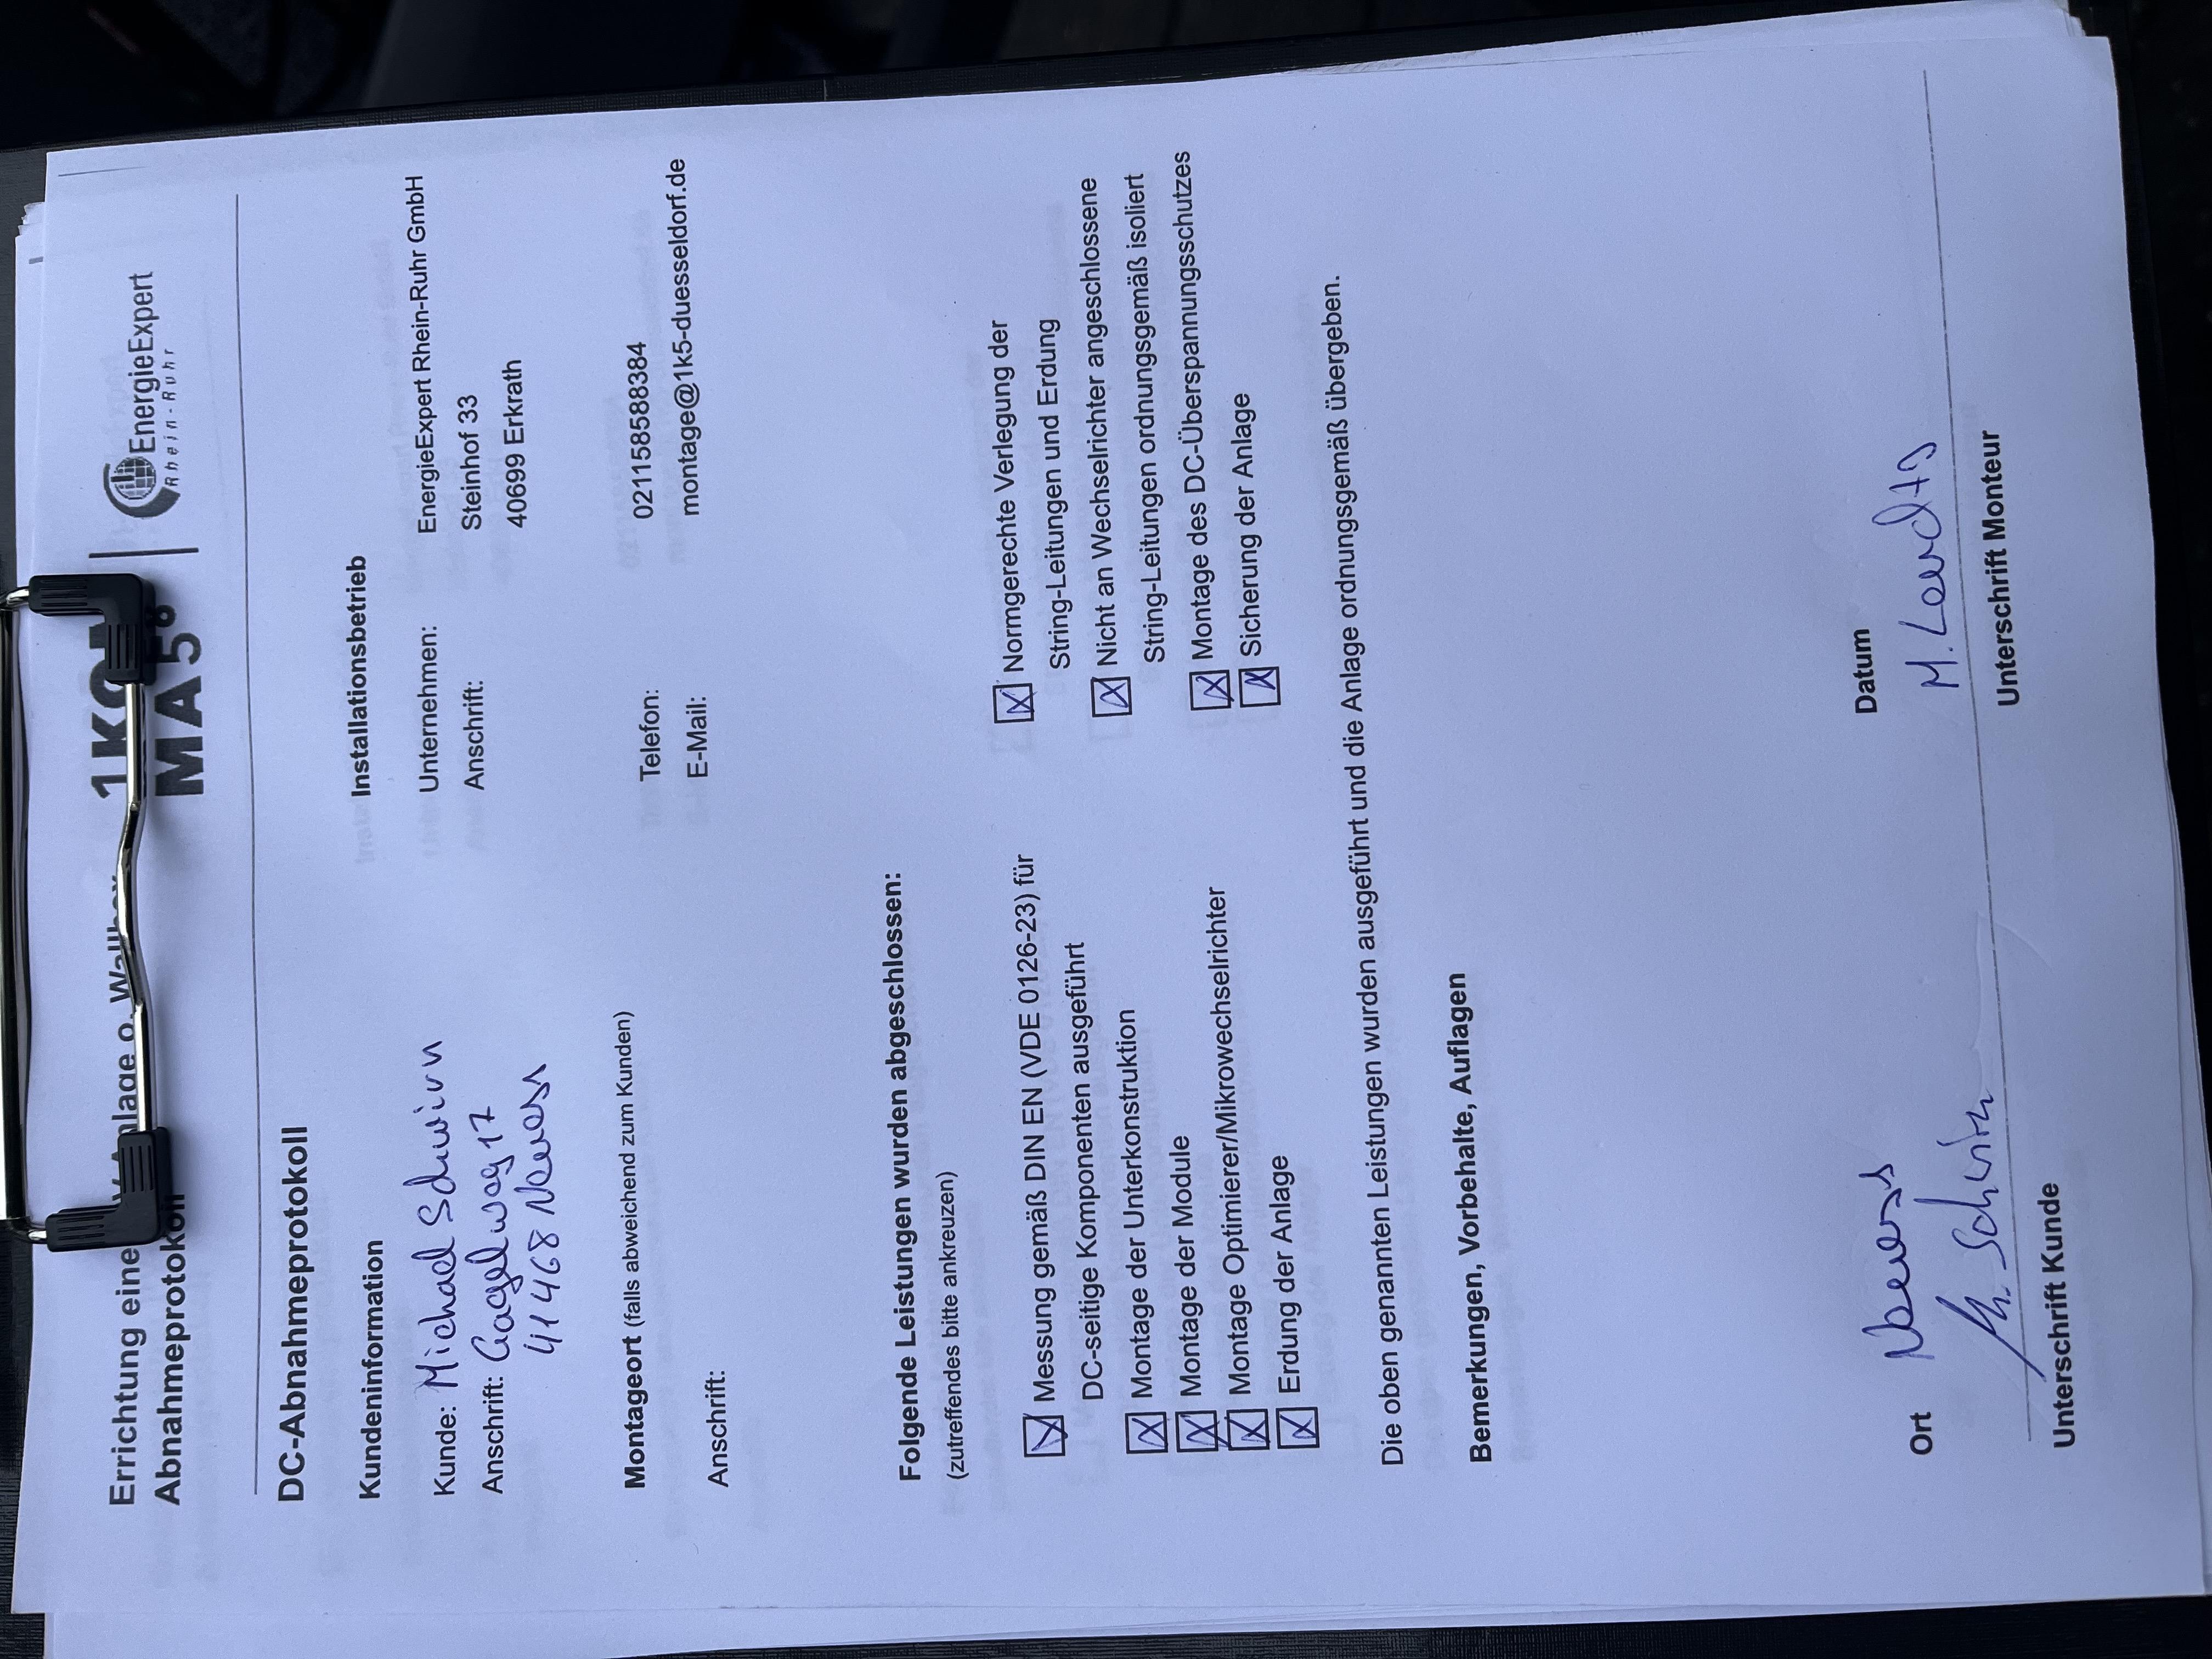 Errichtung eine Anlage o. Wallbox
Abnahmeprotokoll
1KO
MA5°
EnergieExpert
Rhein-Ruhr
DC-Abnahmeprotokoll
Kundeninformation
Kunde: Michael Schwirn
Anschrift: Gagelweg 17
41468 Neuss
Installationsbetrieb
Unternehmen: EnergieExpert Rhein-Ruhr GmbH
Anschrift: Steinhof 33
40699 Erkrath
Montageort (falls abweichend zum Kunden)
Anschrift:
Telefon: 021158588384
E-Mail: montage@1k5-duesseldorf.de
Folgende Leistungen wurden abgeschlossen:
(zutreffendes bitte ankreuzen)
Messung gemäß DIN EN (VDE 0126-23) für
DC-seitige Komponenten ausgeführt
Montage der Unterkonstruktion
Montage der Module
Montage Optimierer/Mikrowechselrichter
Erdung der Anlage
Normgerechte Verlegung der
String-Leitungen und Erdung
Nicht an Wechselrichter angeschlossene
String-Leitungen ordnungsgemäß isoliert
Montage des DC-Überspannungsschutzes
Sicherung der Anlage
Die oben genannten Leistungen wurden ausgeführt und die Anlage ordnungsgemäß übergeben.
Bemerkungen, Vorbehalte, Auflagen
Ort Neuss
Datum
M. Schwirn
Unterschrift Kunde
M. Leudts
Unterschrift Monteur